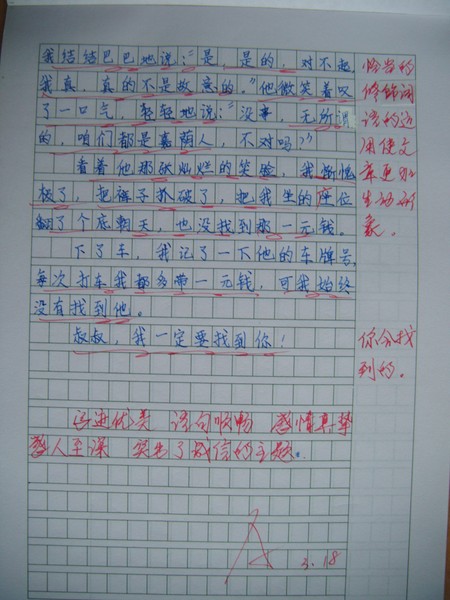 我结结巴巴地说："是，是的，对不起，
我真，真的不是故意的。"他微笑着叹
了一口气，轻轻地说："没事，无所谓
的，咱们都是嘉荫人，不对吗？"
看着他那张灿烂的笑脸，我惭愧
极了，把裤子扒破了，把我坐的座位
翻了个底朝天，也没找到那一元钱。
下了车，我记了一下他的车牌号，
每次打车我都多带一元钱，可我始终
没有找到他。
叔叔，我一定要找到你！
恰当的
修饰词
语的运
用使文
章更加
生动形
象。
你会找
到的。
语句顺畅 感情真挚
感人至深 突出了诚信的主题。
3.18